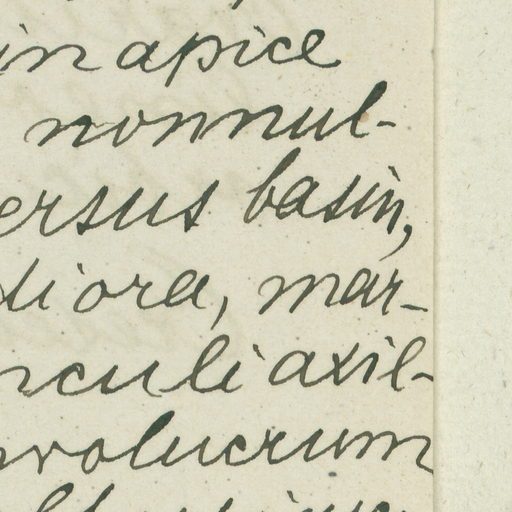 in apice
nonnul-
ersus basin,
tiora, mar-
nculi axil-
nvolucrum